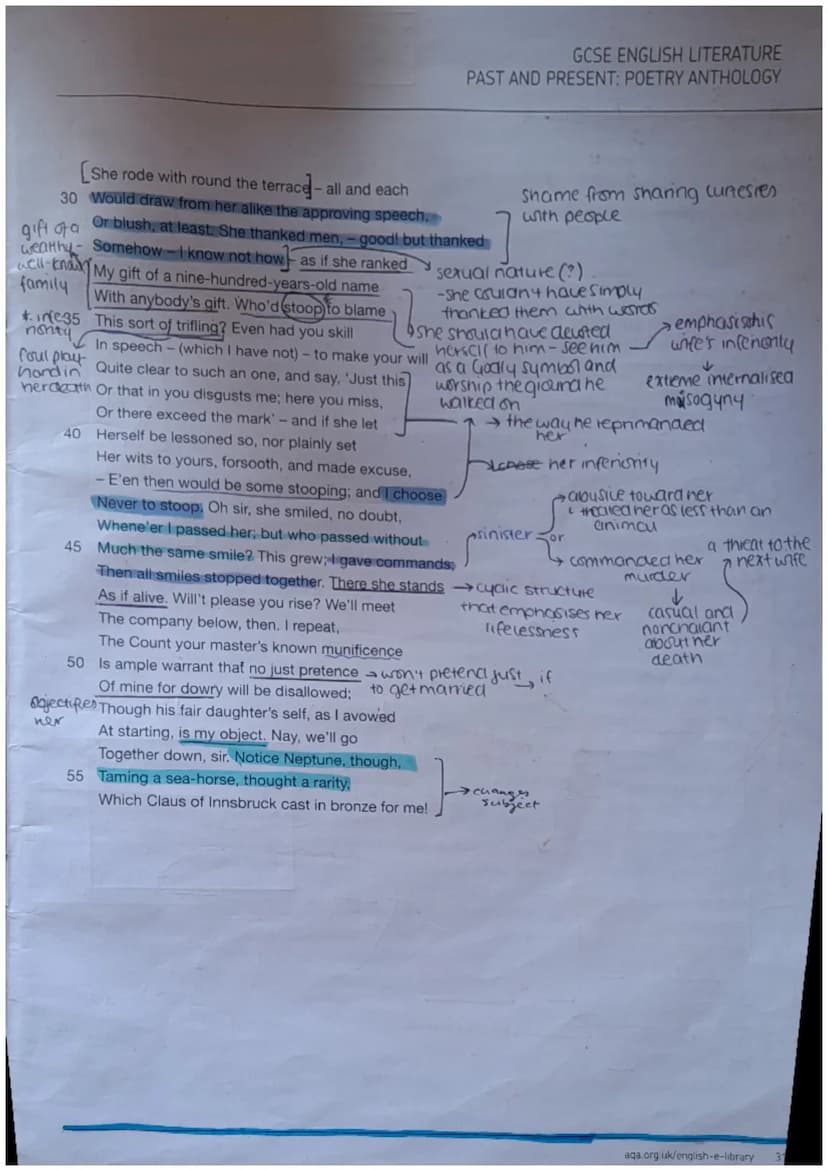 GCSE ENGLISH LITERATURE
PAST AND PRESENT: POETRY ANTHOLOGY
[She rode with round the terrace] – all and each
30 Would draw from her alike the approving speech,
Or blush, at least. She thanked men, – good! but thanked
Somehow – I know not how – as if she ranked
My gift of a nine-hundred-years-old name
With anybody's gift. Who'd stoop to blame
35 This sort of trifling? Even had you skill
In speech – (which I have not) – to make your will
Quite clear to such an one, and say, 'Just this
Or that in you disgusts me; here you miss,
Or there exceed the mark' – and if she let
40 Herself be lessoned so, nor plainly set
Her wits to yours, forsooth, and made excuse,
– E'en then would be some stooping; and I choose
Never to stoop. Oh sir, she smiled, no doubt,
Whene'er I passed her; but who passed without
45 Much the same smile? This grew; I gave commands;
Then all smiles stopped together. There she stands
As if alive. Will't please you rise? We'll meet
The company below, then. I repeat,
The Count your master's known munificence
50 Is ample warrant that no just pretence
Of mine for dowry will be disallowed;
Though his fair daughter's self, as I avowed
At starting, is my object. Nay, we'll go
Together down, sir. Notice Neptune, though,
55 Taming a sea-horse, thought a rarity,
Which Claus of Innsbruck cast in bronze for me!
shame from sharing
with people
gift of a
wealthy-
well-known
family
sexual nature (?)
- she couldn't have simply
thanked them with words
she should have devoted
herself to him – see him
as a Godly symbol and
worship the ground he
walked on
emphasis his
wife's inferiority
extreme internalised
misogyny
foul play
hand in
her death
→ the way he reprimanded
her
her inferiority
sinister
abusive toward her
& treated her as less than an
animal
or
commanded her
murder
casual and
nonchalant
about her
death
a threat to the
next wife
→ cyclic structure
that emphasises her
lifelessness
→ won't pretend just
to get married
→ if
objectifies
her
→ changes
subject
aqa.org.uk/english-e-library